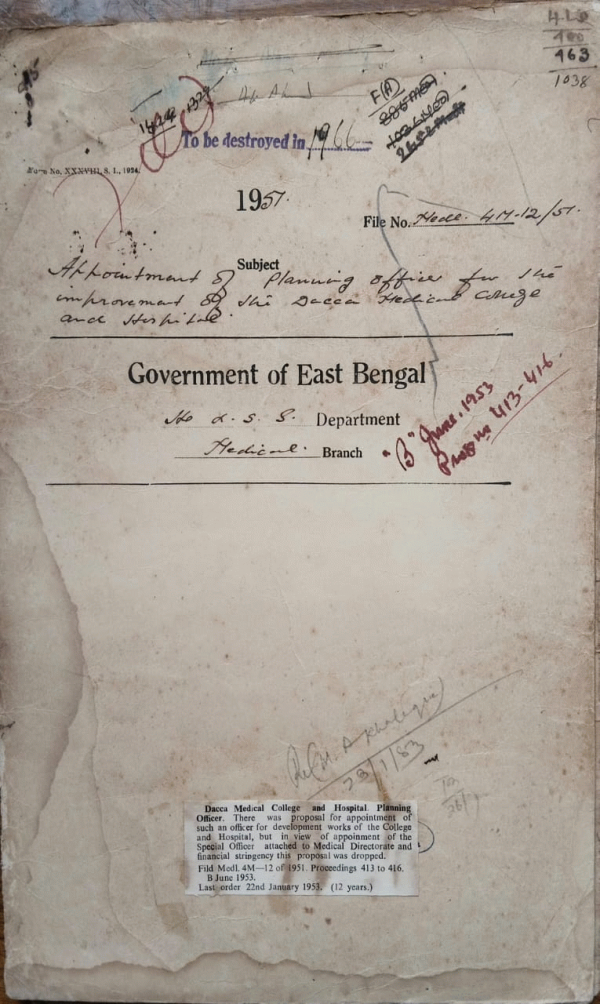 463
1038
F(A)
To be destroyed in 1966
Form No. XXXVIII, S. I., 1924.
1951.
File No. Medl. 4M-12/51.
Subject
Appointment of Planning officer for the
improvement of the Dacca Medical College
and Hospital.
Government of East Bengal
H & L. S. G. Department
Medical. Branch
"B" June. 1953
Progs no 413-416.
28/1/53
Dacca Medical College and Hospital. Planning
Officer. There was proposal for appointment of
such an officer for development works of the College
and Hospital, but in view of appoinment of the
Special Officer attached to Medical Directorate and
financial stringency this proposal was dropped.
Fild Medl. 4M—12 of 1951. Proceedings 413 to 416.
B June 1953.
Last order 22nd January 1953. (12 years.)